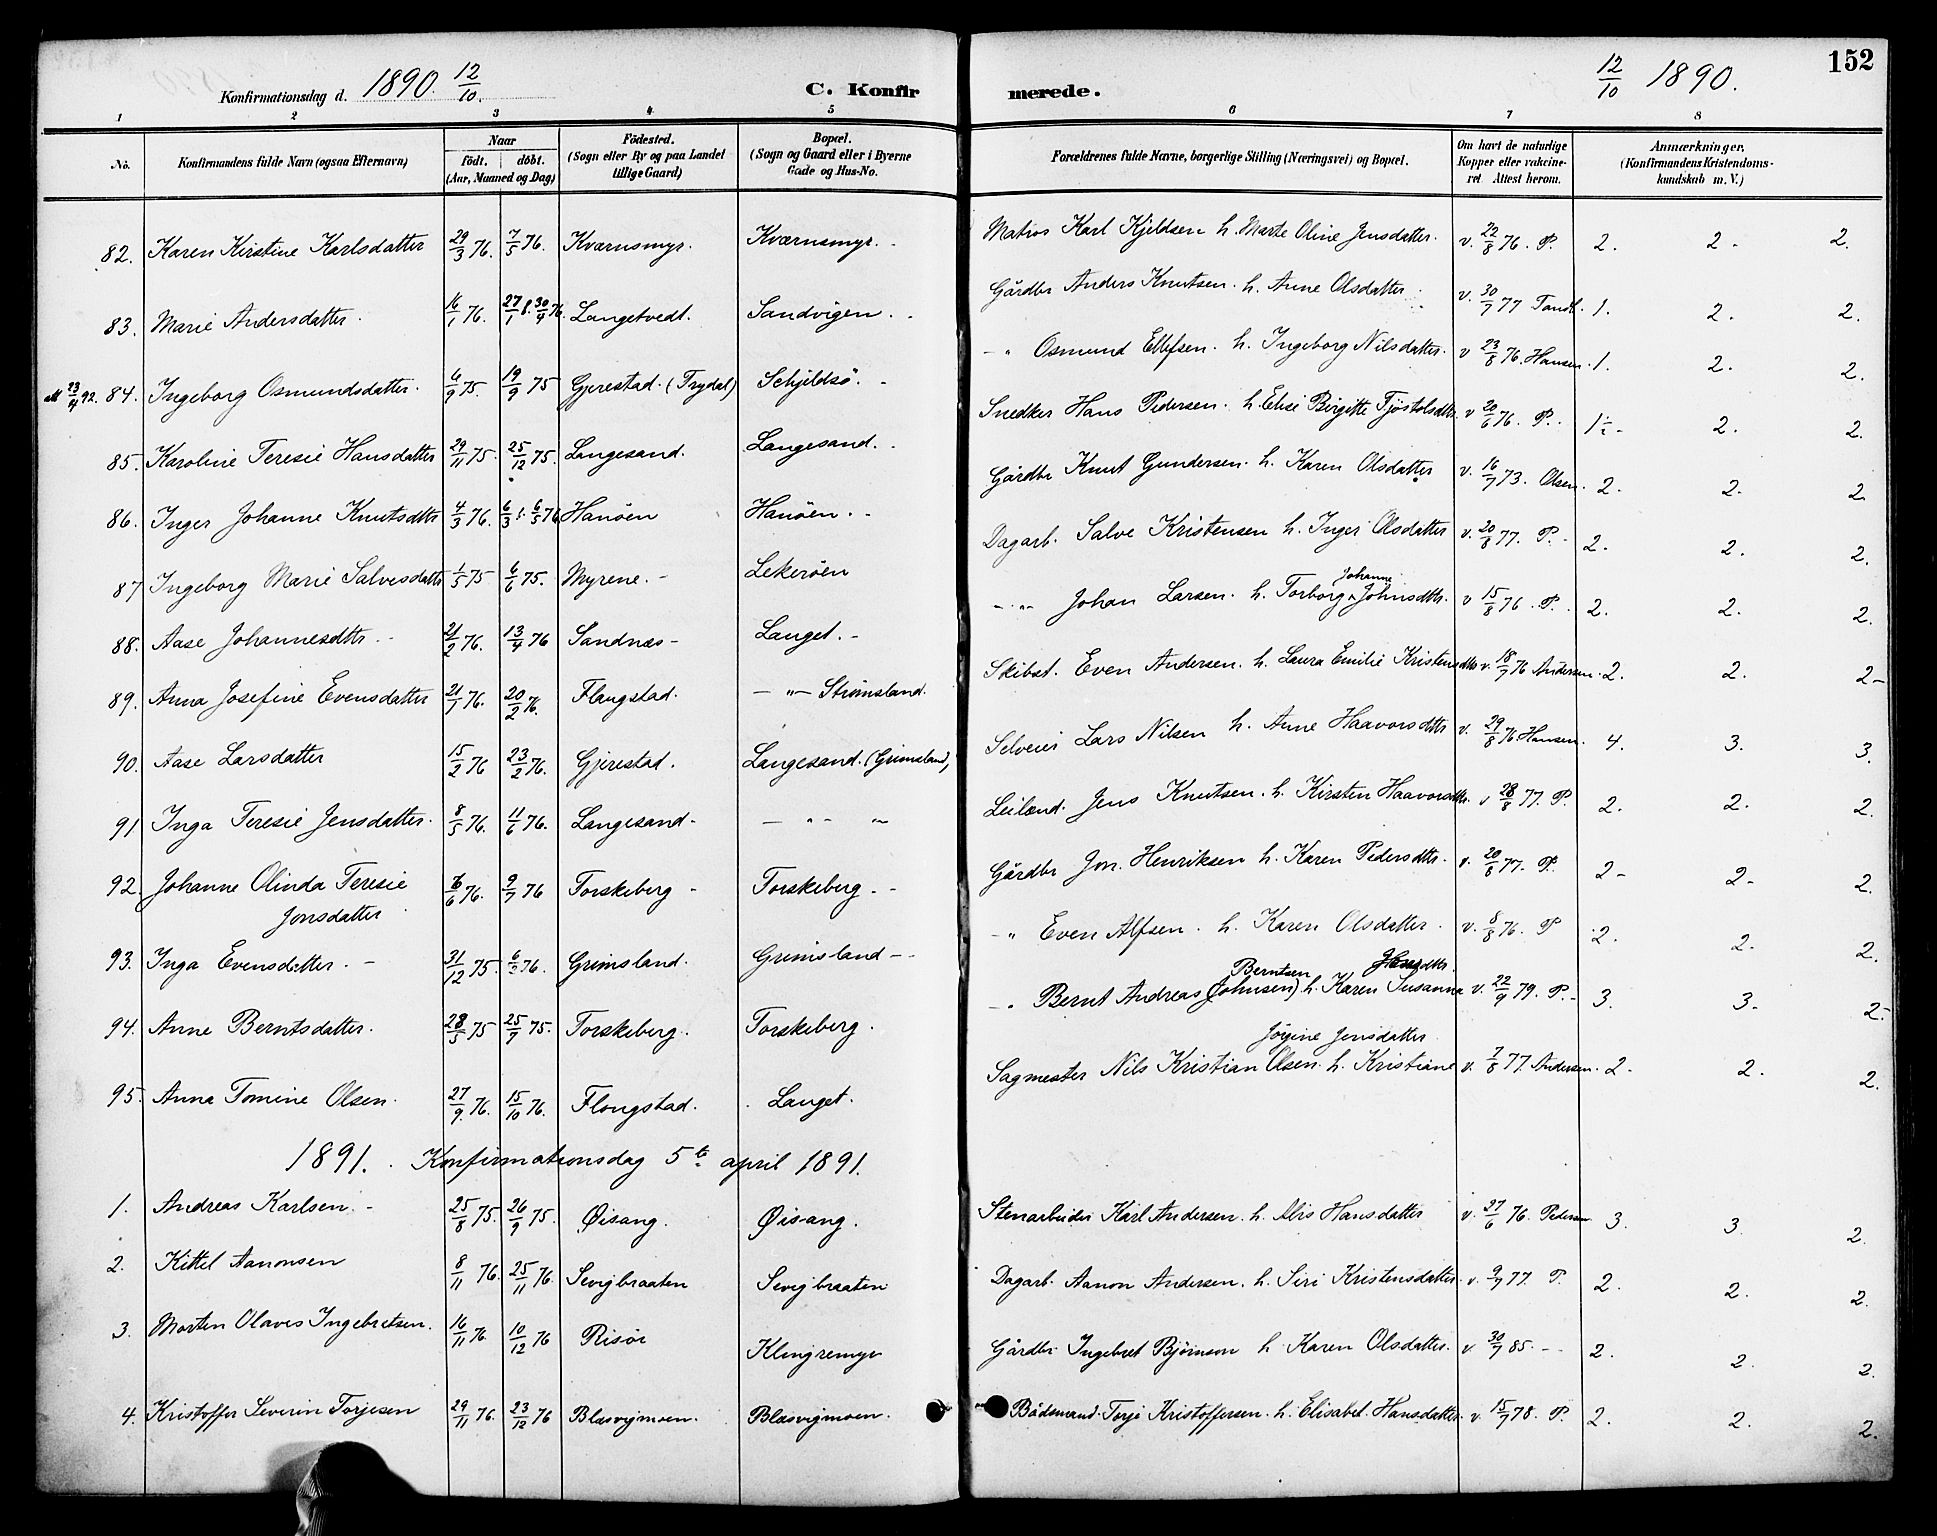 152
Konfirmationsdag d. 1890 12/10. C. Konfirmerede. 12/10 1890.
1 2 3 4 5 6 7 8
No. Konfirmandens fulde Navn (ogsaa Efternavn) Naar födt. döbt. (Aar, Maaned og Dag) Födested. (Sogn eller By og paa Landet tillige Gaard) Bopæl. (Sogn og Gaard eller i Byerne Gade og Hus-No. Forældrenes fulde Navne, borgerlige Stilling (Næringsvei) og Bopæl. Om havt de naturlige Kopper eller vaccineret Attest herom. Anmærkninger. (Konfirmandens Kristendomskundskab m. V.)
82. Karen Kirstine Karlsdatter 29/3 76. 7/5 76. Kværnsmyr. Kværnsmyr. Matros Karl Kjeldsen h. Marte Oline Jensdatter. v. 22/8 76. P. 2. 2. 2.
83. Marie Andersdatter. 16/1 76. 27/1 f. 30/4 76. Langetvedt. Sandvigen. Gårdbr Anders Knutsen. h. Anne Olsdatter v. 30/7 77 Tandb. 1. 2. 2.
23/4 92. 84. Ingeborg Osmundsdatter. 6/9 75. 19/9 75 Gjerestad. (Trydal) Schjeldsö. -„ Osmund Ellefsen. h. Ingeborg Nilsdatter. v 23/8 76. Hansen. 1. 2. 2.
85. Karoline Teresie Hansdatter 29/11 75. 25/12 75. Langesand. Langesand. Snedker Hans Pedersen. h. Elise Birgitte Tjöstolsdtr. v 20/6 76. P. 1½- 2. 2.
86. Inger Johanne Knutsdtr 4/3 76. 6/3 f. 6/5 76 Hanöen Hanöen. Gårdbr Knut Gundersen. h. Karen Olsdatter v. 16/7 73. Olsen. 2. 2. 2
87 Ingeborg Marie Salvesdatter 1/5 75 6/6 75. Myrene. Lekeröen Dagarb. Salve Kristensen h. Inger Olsdatter v. 20/8 77. P. 2. 2. 2.
88. Aase Johannesdtr. 21/2 76. 13/4 76 Sandnæs- Langet. -„- Johan Larsen. h. Torborg Johanne Johnsdtr. v 15/8 76. P. 2. 2. 2.
89. Anna Josefine Evensdatter 21/1 76. 20/2 76. Flangstad. -„- Strömsland. Skibst. Even Andersen. h. Laura Emilie Kristensdtr v. 18/7 76 Andersen. 2. 2. 2-
90. Aase Larsdatter 15/2 76 23/2 76. Gjerestad. Langesand. (Grimsland) Selveier Lars Nilsen h. Anne Haavorsdtr v. 29/8 76. Hansen. 4. 3. 3.
91 Inga Teresie Jensdatter. 8/5 76. 11/6 76. Langesand- - „ - „ Leilænd. Jens Knutsen. h. Kirsten Haavorsdtr. v 28/8 77. P. 2. 2. 2.
92. Johanne Olinda Teresie Jonsdatter 6/6 76. 9/7 76 Torskeberg - Torskeberg. Gårdbr Jon. Henriksen h. Karen Pedersdtr. v. 20/8 77. P. 2- 2- 2.
93. Inga Evensdatter. - 31/12 75. 6/2 76. Grimsland. Grimsland - -„ Even Alfsen. h. Karen Olsdatter. v. 8/8 76. P 2. 2. 2.
94. Anne Berntsdatter. 28/5 75 25/7 75. Torskeberg. Torskeberg. -„ Bernt Andreas Berntsen (Johnsen) h. Karen Susanna Hansdtr. v. 22/9 79. P. 3. 3. 2-
95. Anna Tomine Olsen. 27/9. 76. 15/10 76. Flongstad. Langet. Sagmester Nils Kristian Olsen. h. Kristiane Jörgine Jensdatter v. 7/8 77. Andersen. 2. 2. 2.
1891. Konfirmationsdag 5te april 1891.
1. Andreas Karlsen. - 25/8 75. 26/9 75. Øisang. Øisang. Stenarbeider Karl Andersen. h. Alis Hansdatter v. 27/6 76. Pedersen 3. 3 2.
2. Kittel Aanonsen 8/11 76. 25/11 76. Sevigbraaten Sevigbraaten Dagarb. Aanon Andersen. h. Siri Kristensdatter. v. 9/7 77. P. 2. 2. 2.
3. Morten Olaves Ingebretsen. 16/11 76. 10/12 76 Risör Klingremyr Gårdbr. Ingebret Björnson h. Karen Olsdatter. v. 30/7 85. -- 2. 2. 2.
4. Kristoffer Severin Torjesen 29/11 76. 23/12 76 Blasvigmoen. Blasvigmoen. Bådsmand. Torje Kristoffersen. h. Elisabet. Hansdatter. v. 15/7 78. P. 2. 2. 2.